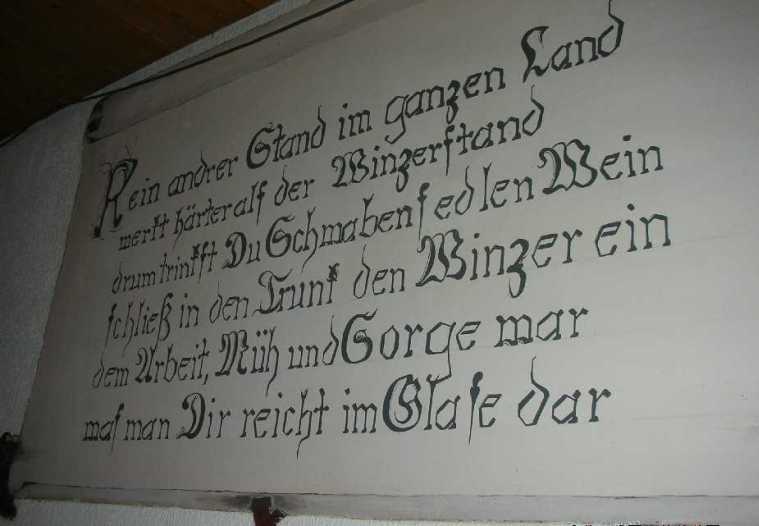 Kein andrer Stand im ganzen Land
werkt härter als der Winzerstand
drum trinkst Du Schwabens edlen Wein
schließ in den Trunk den Winzer ein
dem Arbeit, Müh und Sorge war
was man Dir reicht im Glase dar